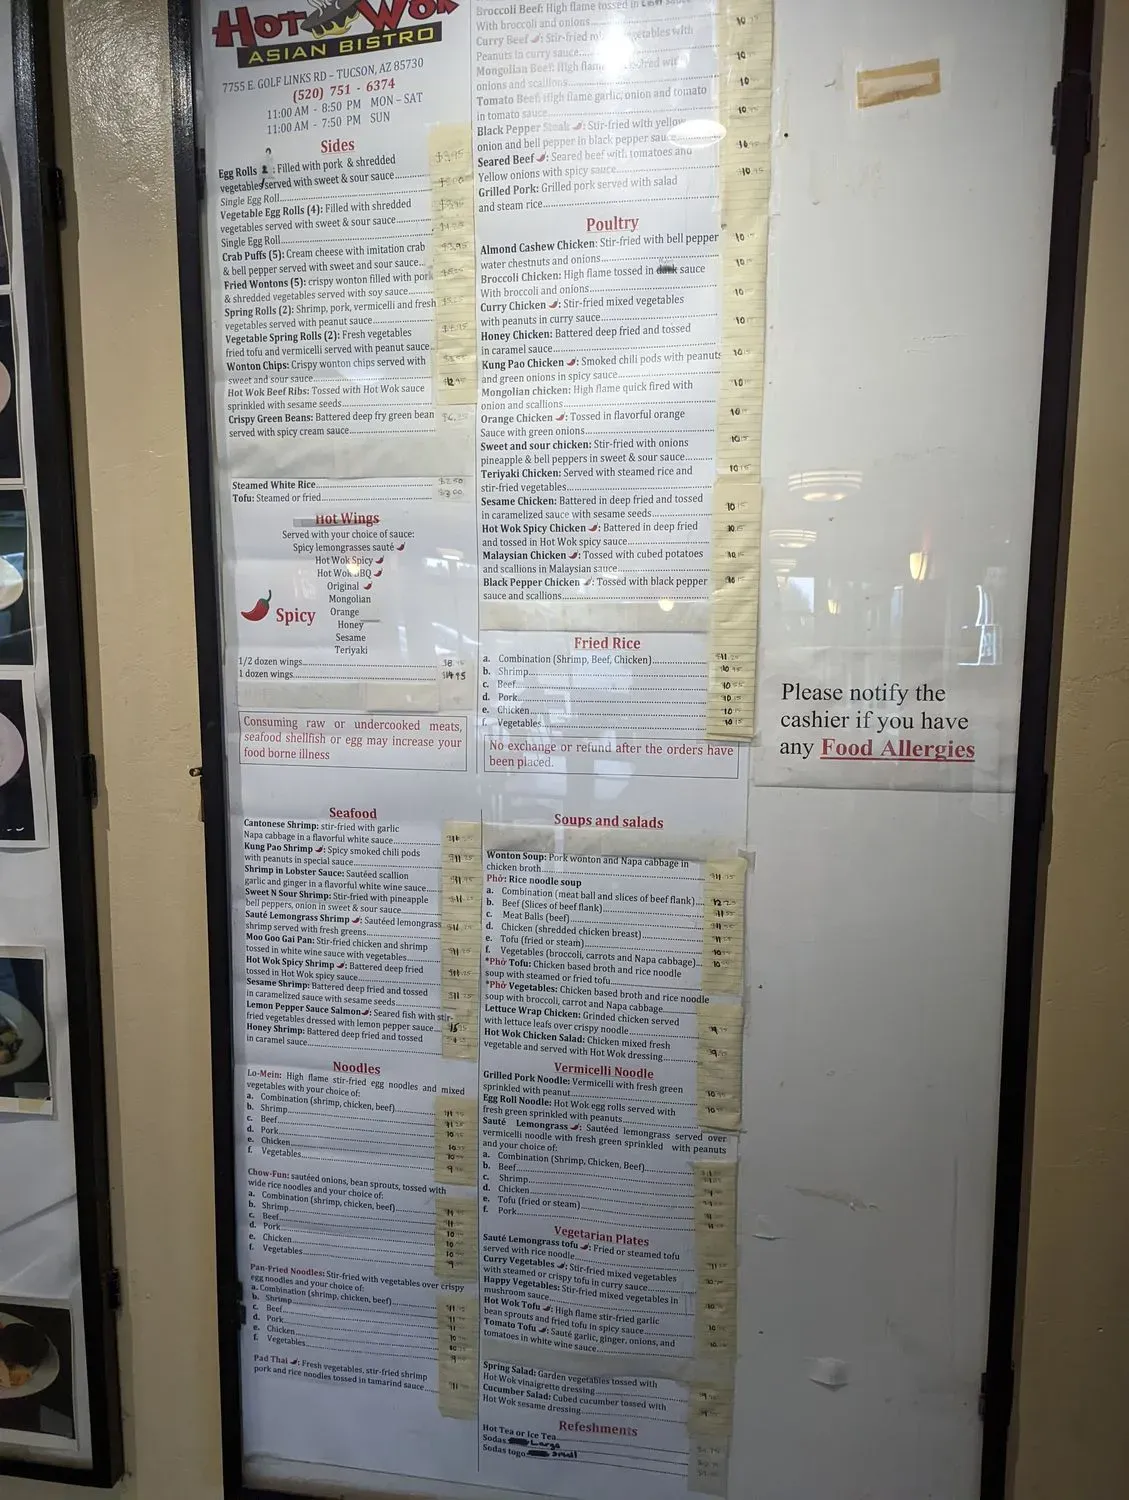 Hot Wok
ASIAN BISTRO
7755 E. GOLF LINKS RD – TUCSON, AZ 85730
(520) 751 - 6374
11:00 AM - 8:50 PM MON – SAT
11:00 AM - 7:50 PM SUN
Sides
Egg Rolls : Filled with pork & shredded
vegetables served with sweet & sour sauce
Single Egg Roll
Vegetable Egg Rolls (4): Filled with shredded
vegetables served with sweet & sour sauce
Single Egg Roll
Crab Puffs (5): Cream cheese with imitation crab
& bell pepper served with sweet and sour sauce
Fried Wontons (5): crispy wonton filled with pork
& shredded vegetables served with soy sauce
Spring Rolls (2): Shrimp, pork, vermicelli and fresh
vegetables served with peanut sauce
Vegetable Spring Rolls (2): Fresh vegetables
fried tofu and vermicelli served with peanut sauce
Wonton Chips: Crispy wonton chips served with
sweet and sour sauce
Hot Wok Beef Ribs: Tossed with Hot Wok sauce
sprinkled with sesame seeds
Crispy Green Beans: Battered deep fry green bean
served with spicy cream sauce
Steamed White Rice $2.50
Tofu: Steamed or fried $3.00
Hot Wings
Served with your choice of sauce:
Spicy lemongrasses sauté
Hot Wok Spicy
Hot Wok BBQ
Original
Mongolian
Orange
Honey
Sesame
Teriyaki
Spicy
1/2 dozen wings
1 dozen wings $14.95
Consuming raw or undercooked meats,
seafood shellfish or egg may increase your
food borne illness
Seafood
Cantonese Shrimp: stir-fried with garlic
Napa cabbage in a flavorful white sauce
Kung Pao Shrimp : Spicy smoked chili pods
with peanuts in special sauce
Shrimp in Lobster Sauce: Sautéed scallion
garlic and ginger in a flavorful white wine sauce
Sweet N Sour Shrimp: Stir-fried with pineapple
bell peppers, onion in sweet & sour sauce
Sauté Lemongrass Shrimp : Sautéed lemongrass
shrimp served with fresh greens
Moo Goo Gai Pan: Stir-fried chicken and shrimp
tossed in white wine sauce with vegetables
Hot Wok Spicy Shrimp : Battered deep fried
tossed in Hot Wok spicy sauce
Sesame Shrimp: Battered deep fried and tossed
in caramelized sauce with sesame seeds
Lemon Pepper Sauce Salmon : Seared fish with stir-
fried vegetables dressed with lemon pepper sauce
Honey Shrimp: Battered deep fried and tossed
in caramel sauce
Noodles
Lo-Mein: High flame stir-fried egg noodles and mixed
vegetables with your choice of:
a. Combination (shrimp, chicken, beef)
b. Shrimp
c. Beef
d. Pork
e. Chicken
f. Vegetables
Chow-Fun: sautéed onions, bean sprouts, tossed with
wide rice noodles and your choice of:
a. Combination (shrimp, chicken, beef)
b. Shrimp
c. Beef
d. Pork
e. Chicken
f. Vegetables
Pan-Fried Noodles: Stir-fried with vegetables over crispy
egg noodles and your choice of:
a. Combination (shrimp, chicken, beef)
b. Shrimp
c. Beef
d. Pork
e. Chicken
f. Vegetables
Pad Thai : Fresh vegetables, stir-fried shrimp
pork and rice noodles tossed in tamarind sauce
Broccoli Beef: High flame tossed in sauce
With broccoli and onions
Curry Beef : Stir-fried vegetables with
Peanuts in curry sauce
Mongolian Beef: High flame
onions and scallions
Tomato Beef: High flame garlic, onion and tomato
in tomato sauce
Black Pepper Steak : Stir-fried with yellow
onion and bell pepper in black pepper sauce
Seared Beef : Seared beef with tomatoes and
Yellow onions with spicy sauce
Grilled Pork: Grilled pork served with salad
and steam rice
Poultry
Almond Cashew Chicken: Stir-fried with bell pepper
water chestnuts and onions
Broccoli Chicken: High flame tossed in sauce
With broccoli and onions
Curry Chicken : Stir-fried mixed vegetables
with peanuts in curry sauce
Honey Chicken: Battered deep fried and tossed
in caramel sauce
Kung Pao Chicken : Smoked chili pods with peanuts
and green onions in spicy sauce
Mongolian chicken: High flame quick fired with
onion and scallions
Orange Chicken : Tossed in flavorful orange
Sauce with green onions
Sweet and sour chicken: Stir-fried with onions
pineapple & bell peppers in sweet & sour sauce
Teriyaki Chicken: Served with steamed rice and
stir-fried vegetables
Sesame Chicken: Battered in deep fried and tossed
in caramelized sauce with sesame seeds
Hot Wok Spicy Chicken : Battered in deep fried
and tossed in Hot Wok spicy sauce
Malaysian Chicken : Tossed with cubed potatoes
and scallions in Malaysian sauce
Black Pepper Chicken : Tossed with black pepper
sauce and scallions
Fried Rice
a. Combination (Shrimp, Beef, Chicken)
b. Shrimp
c. Beef
d. Pork
e. Chicken
f. Vegetables
No exchange or refund after the orders have
been placed.
Soups and salads
Wonton Soup: Pork wonton and Napa cabbage in
chicken broth
Phở: Rice noodle soup
a. Combination (meat ball and slices of beef flank)
b. Beef (Slices of beef flank)
c. Meat Balls (beef)
d. Chicken (shredded chicken breast)
e. Tofu (fried or steam)
f. Vegetables (broccoli, carrots and Napa cabbage)
*Phở Tofu: Chicken based broth and rice noodle
soup with steamed or fried tofu
*Phở Vegetables: Chicken based broth and rice noodle
soup with broccoli, carrot and Napa cabbage
Lettuce Wrap Chicken: Grinded chicken served
with lettuce leafs over crispy noodle
Hot Wok Chicken Salad: Chicken mixed fresh
vegetable and served with Hot Wok dressing
Vermicelli Noodle
Grilled Pork Noodle: Vermicelli with fresh green
sprinkled with peanut
Egg Roll Noodle: Hot Wok egg rolls served with
fresh green sprinkled with peanuts
Sauté Lemongrass : Sautéed lemongrass served over
vermicelli noodle with fresh green sprinkled with peanuts
and your choice of:
a. Combination (Shrimp, Chicken, Beef)
b. Beef
c. Shrimp
d. Chicken
e. Tofu (fried or steam)
f. Pork
Vegetarian Plates
Sauté Lemongrass tofu : Fried or steamed tofu
served with rice noodle
Curry Vegetables : Stir-fried mixed vegetables
with steamed or crispy tofu in curry sauce
Happy Vegetables: Stir-fried mixed vegetables in
mushroom sauce
Hot Wok Tofu : High flame stir-fried garlic
bean sprouts and fried tofu in spicy sauce
Tomato Tofu : Sauté garlic, ginger, onions, and
tomatoes in white wine sauce
Spring Salad: Garden vegetables tossed with
Hot Wok vinaigrette dressing
Cucumber Salad: Cubed cucumber tossed with
Hot Wok sesame dressing
Refeshments
Hot Tea or Ice Tea
Sodas Large
Sodas togo Small
Please notify the
cashier if you have
any Food Allergies